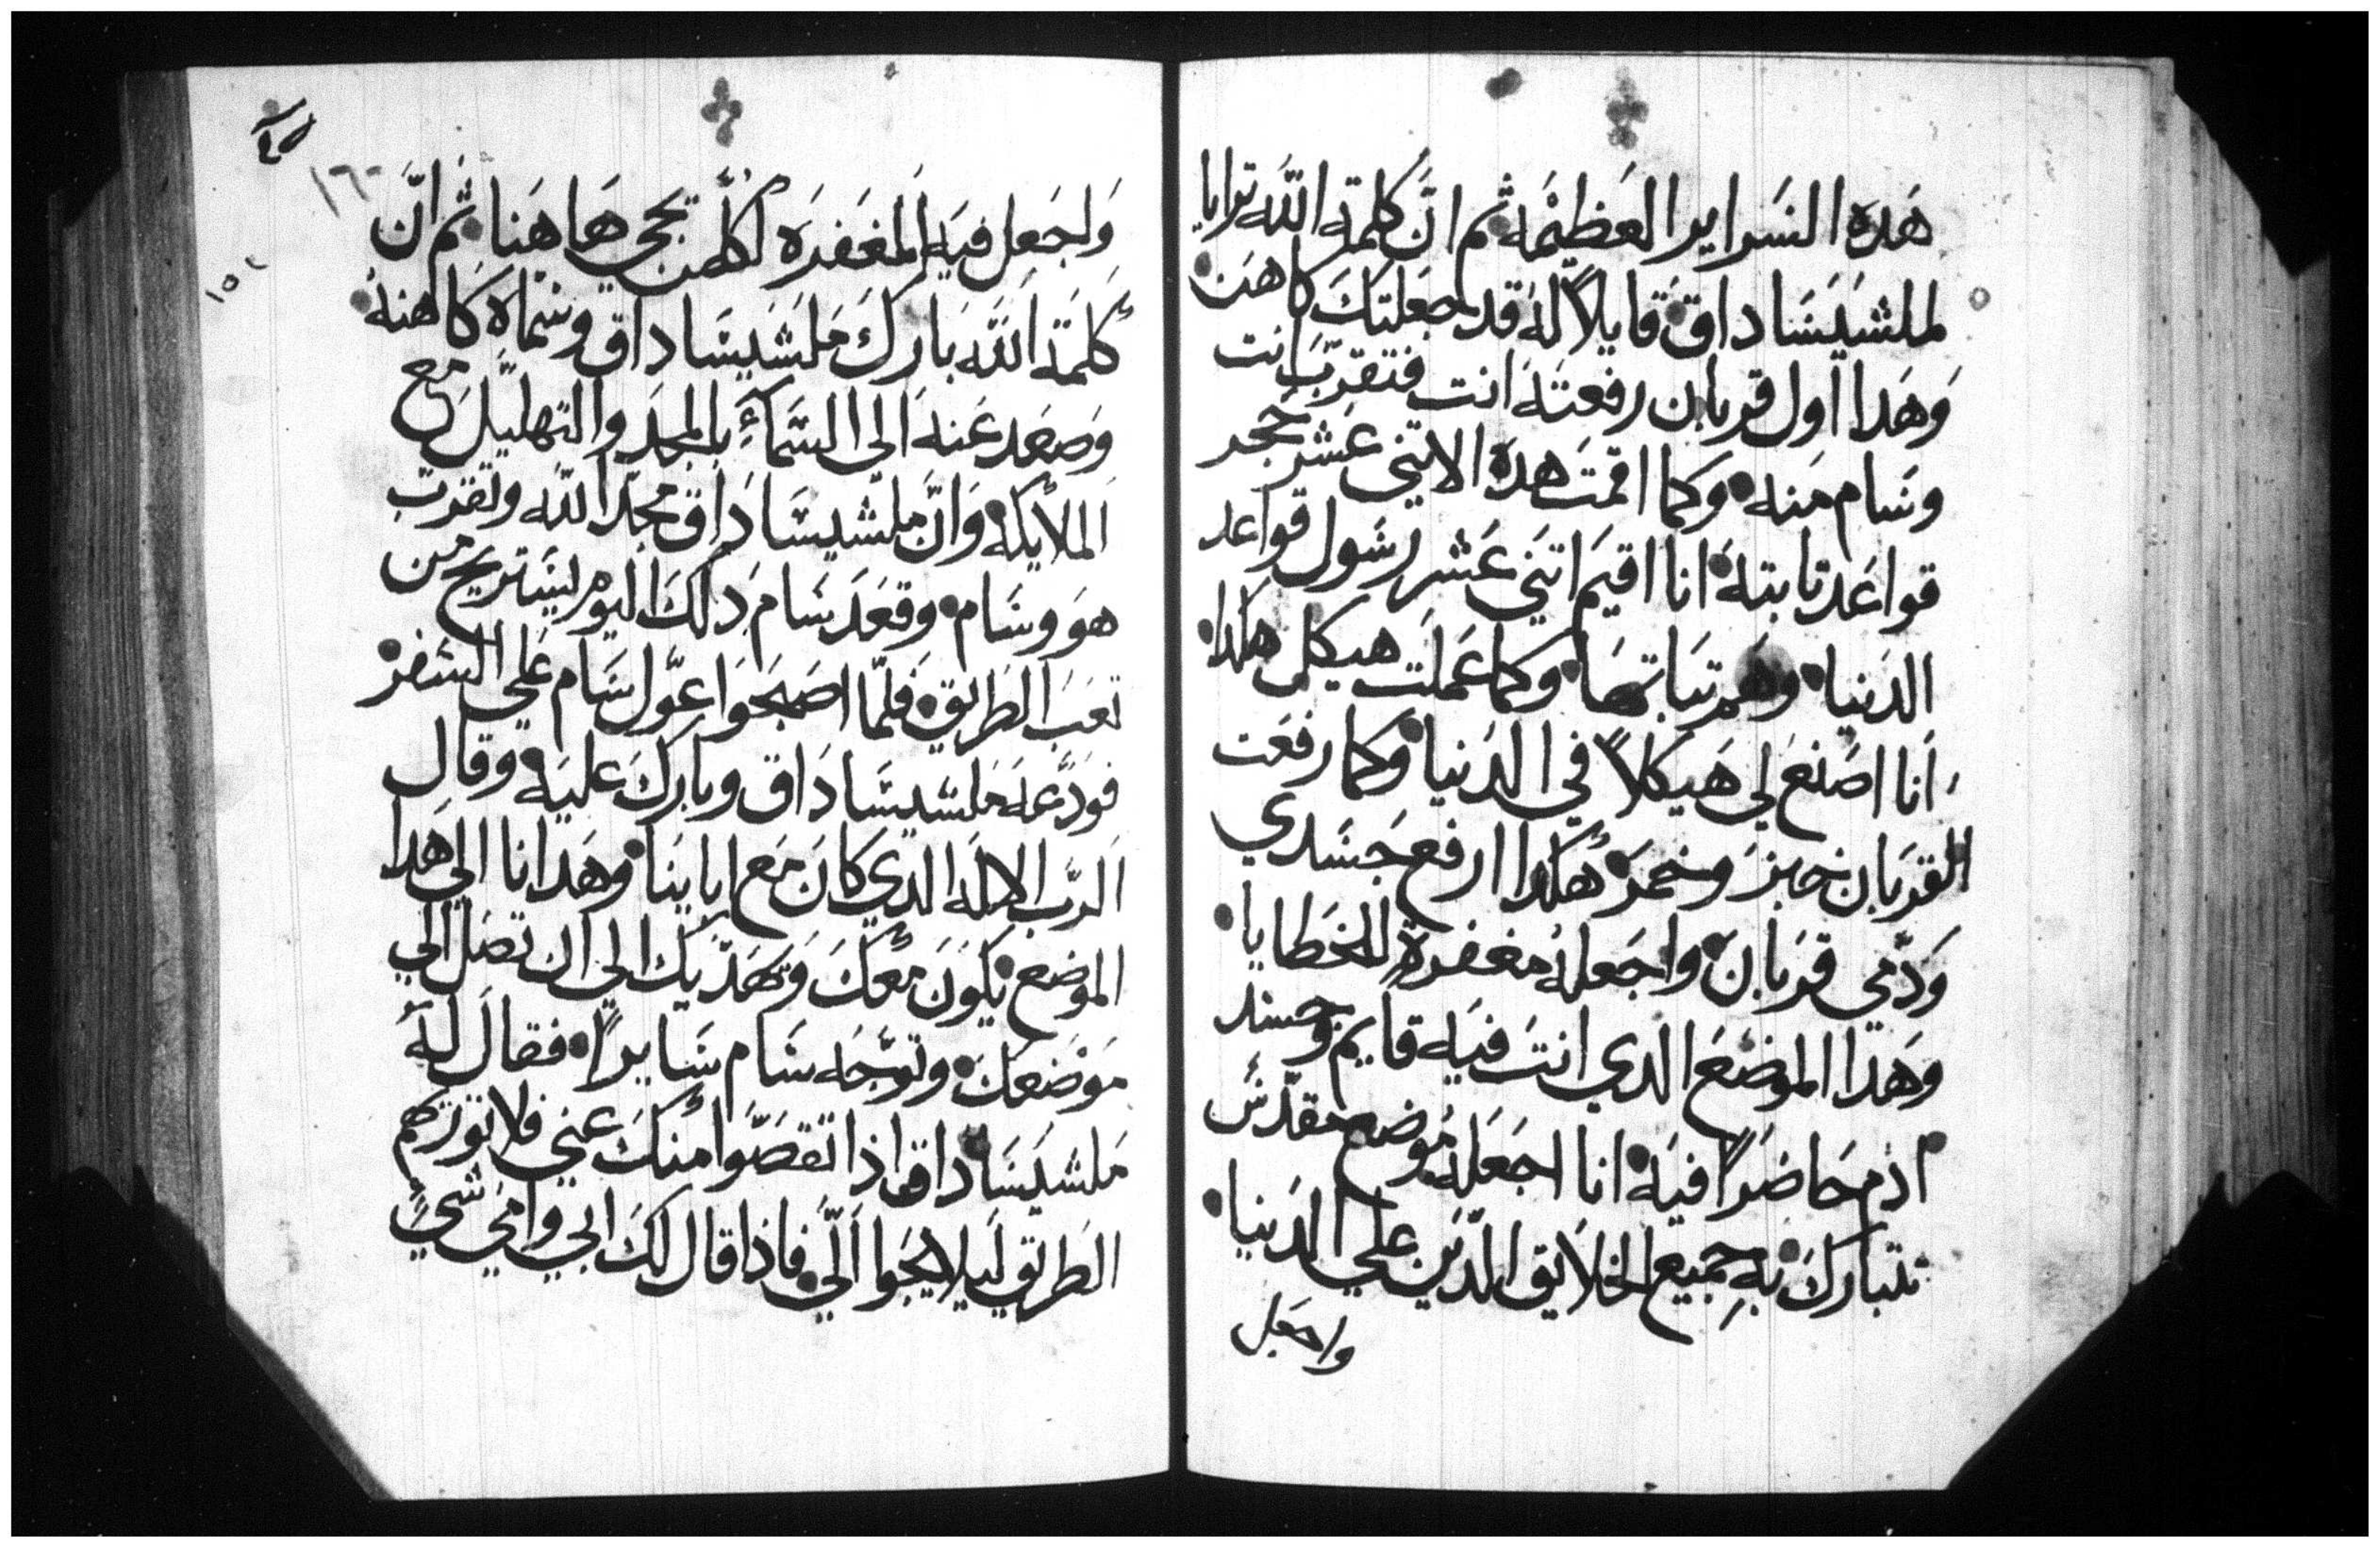 هَده السَراير العَظيْمَه ثم انَّ كلمة الله ترايا
لملشيَسَاداق قايلاً لهُ قد جَعلتكَ كاهَن
وَهَدا اول قربان رفعتهَ انت فتقربَ انت
وسَام مَنه وكما اقمتَ هده الاتني عَشر حَجر
قواعَد تابته انا اقيمَ اتنَي عَشر رسَول قواعد
الدَنيا وهَم تباتهَا وكما عَملت هيكل هكدا
انا اصَنعَ لي هَيكلاً في الدَنيا وكما رفعَت
القربَان خبز وخمرَ هَكدا ارفع جَسَدي
وَدَمّي قربَان واجعلهُ مغفرةِ للخَطايا
وَهَدا الموضعَ الدي انتَ فيَه قايم وجسَد
ادم حَاضرًا فيَه انا اجعَلهُ موضع مقدَّس
تتباركَ بهِ جميع الخلايق الدَّين علي الدَنيا
واجعَل
٤٥
١٦٠
١٥١
وَاجَعل فيَه المغَفرَه لكلمَن يجي هَاهَنا ثم انّ
كلمَة الله بَاركَ مَلشَيسَاداق وسَمَاه كاهنهُ
وَصَعَد عَنه الي السَّمَاءِ بالمجَدَ والتهليَل مَع
الملايَكه وَانَّ ملشيسَادَاق مجَّدَ الله وتقرب
هوَ وسَام وقعَدَ سَامَ دلكَ اليومَ ليسَتريح من
تعَبَ الطَريق فلمّا اصَبحَوا عَوّل سَام عَلي السَفر
فوَدَّعهَ مَلشيسَادَاق وبَاركَ عليَه وقال
الرَّب الالهَ الدي كانَ مَع ابايَنا وهَدانا الي هَدا
الموضع يكَونَ معَكَ وَيهَدّيك الي ان تصَل الي
مَوضَعكَ وتوَجَه سَام سَايراً فقالَ لهُ
مَلشيَسَاداق اذا تقصَّوا منكَ عَني فلا توريَهم
الطَريق ليَلا يجَوا الَّي فاذا قال لكَ ابي وامَي شيً